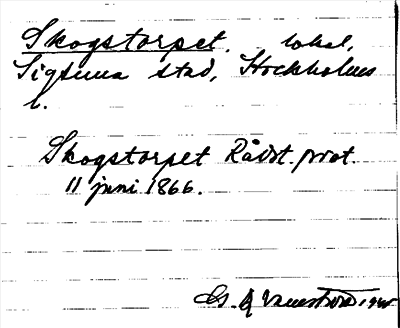 Skogstorpet. lokal,
Sigtuna stad, Stockholms
l.
Skogstorpet Rådst. prot.
11 juni 1866.